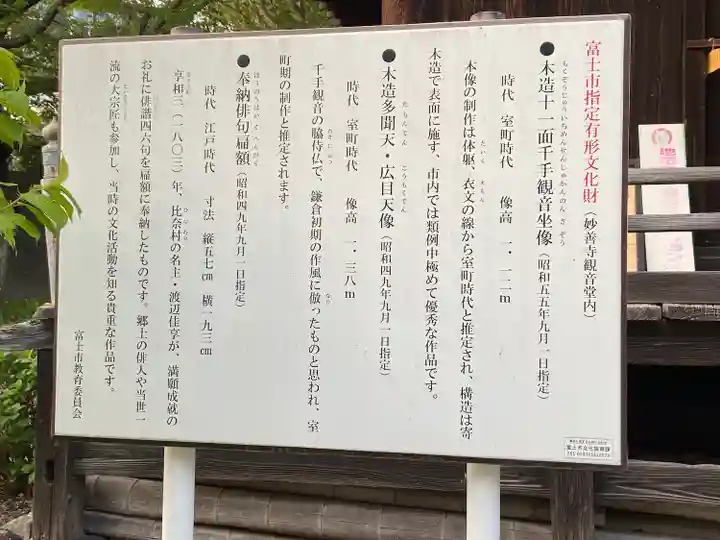 富士市指定有形文化財（妙善寺観音堂内）
●木造十一面千手観音坐像（昭和五五年九月一日指定）
もくぞうじゅういちめんせんじゅかんのんざぞう
時代　室町時代　像高　一．一二m
本像の制作は体躯、衣文の線から室町時代と推定され、構造は寄
たいく　えもん
木造で表面に施す、市内では類例中極めて優秀な作品です。
●木造多聞天・広目天像（昭和四九年九月一日指定）
たもんてん　こうもくてん
時代　室町時代　像高　一．三八m
千手観音の脇侍仏で、鎌倉初期の作風に倣ったものと思われ、室
なら
町期の制作と推定されます。
●奉納俳句扁額（昭和四九年九月一日指定）
ほうのうはいくへんがく
時代　江戸時代　寸法　縦五七㎝　横一九三㎝
享和三（一八〇三）年、比奈村の名主・渡辺佳享が、満願成就の
きょうわ　ひなむら
お礼に俳諧四六句を扁額に奉納したものです。郷土の俳人や当世一
流の大宗匠も参加し、当時の文化活動を知る貴重な作品です。
富士市教育委員会